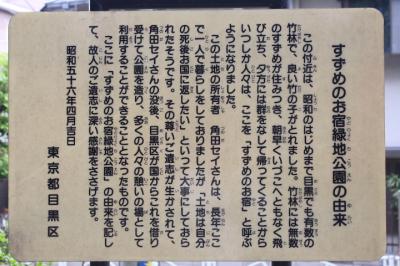 すずめのお宿緑地公園の由来
この付近は、昭和のはじめまで目黒でも有数の
竹林で、良い竹の子がとれました。竹林には無数
のすずめが住みつき、朝早くいづこへともなく飛
び立ち、夕方には群をなして帰ってくることから
いつしか人々は、ここを「すずめのお宿」と呼ぶ
ようになりました。
この土地の所有者 角田セイさんは、長年ここ
で一人で暮らしをしておりましたが「土地は自分
の死後お国に返したい」といって大事にしておら
れたそうです。その尊いご遺志が生かされて、
角田セイさんの没後、目黒区が国からこれを借り
受けて公園を造り、多くの人々の憩いの場として
利用することができることとなったものです。
ここに「すずめのお宿緑地公園」の由来を記し
て、故人のご遺志に深い感謝をささげます。
昭和五十六年四月吉日
東京都目黒区